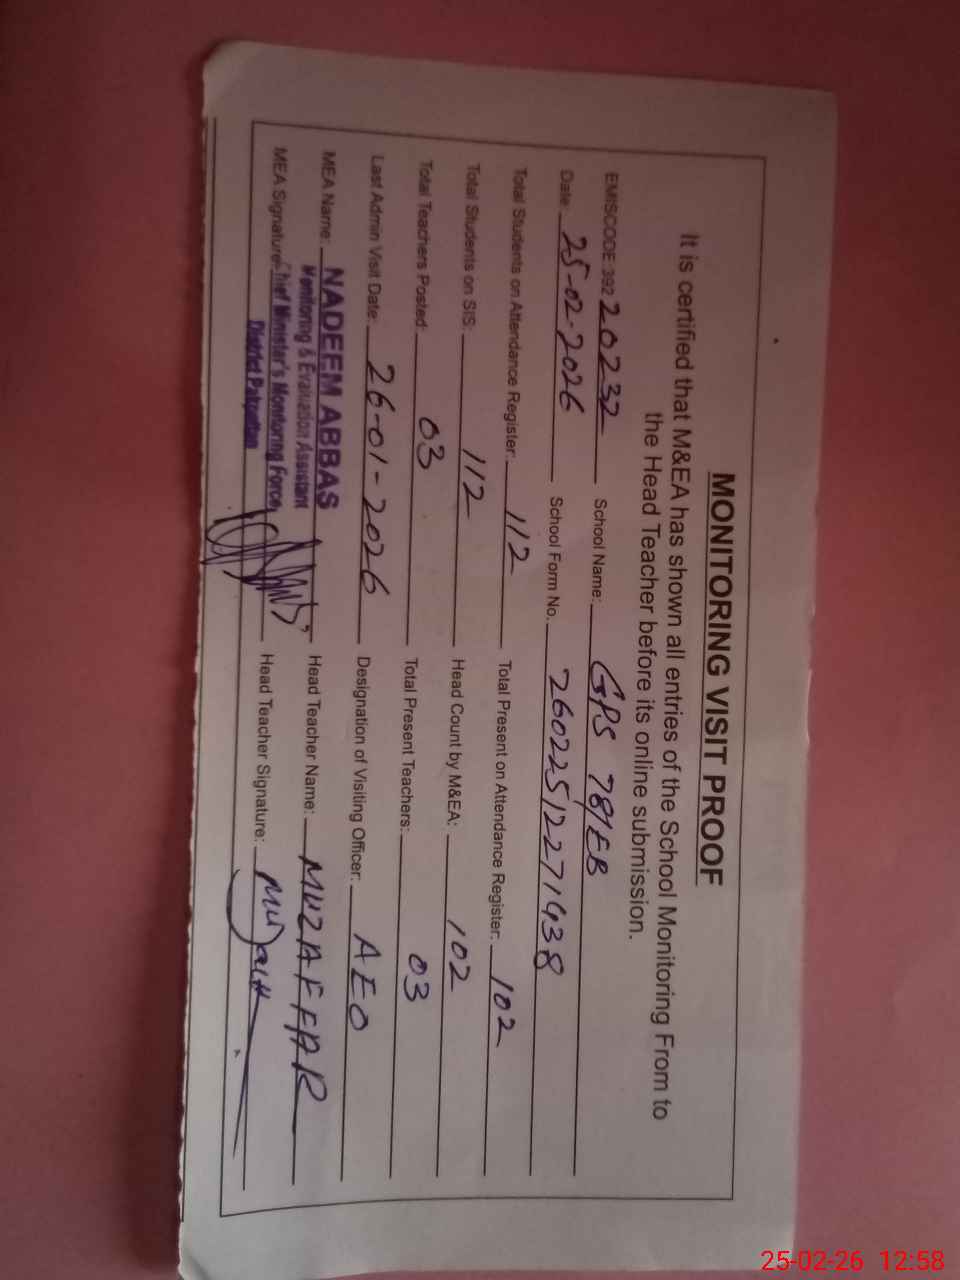 MONITORING VISIT PROOF
It is certified that M&EA has shown all entries of the School Monitoring From to
the Head Teacher before its online submission.
EMISCODE 392 20232 School Name: GPS 78/EB
Date: 25-02-2026 School Form No. 26022512271438
Total Students on Attendance Register: 112 Total Present on Attendance Register: 102
Total Students on SIS: 112 Head Count by M&EA: 102
Total Teachers Posted: 03 Total Present Teachers: 03
Last Admin Visit Date: 26-01-2026 Designation of Visiting Officer: AEO
MEA Name: NADEEM ABBAS Head Teacher Name: MUZAFFAR
Monitoring & Evaluation Assistant
MEA Signature: Chief Minister's Monitoring Force, Head Teacher Signature:
District Pakpattan
25-02-26 12:58